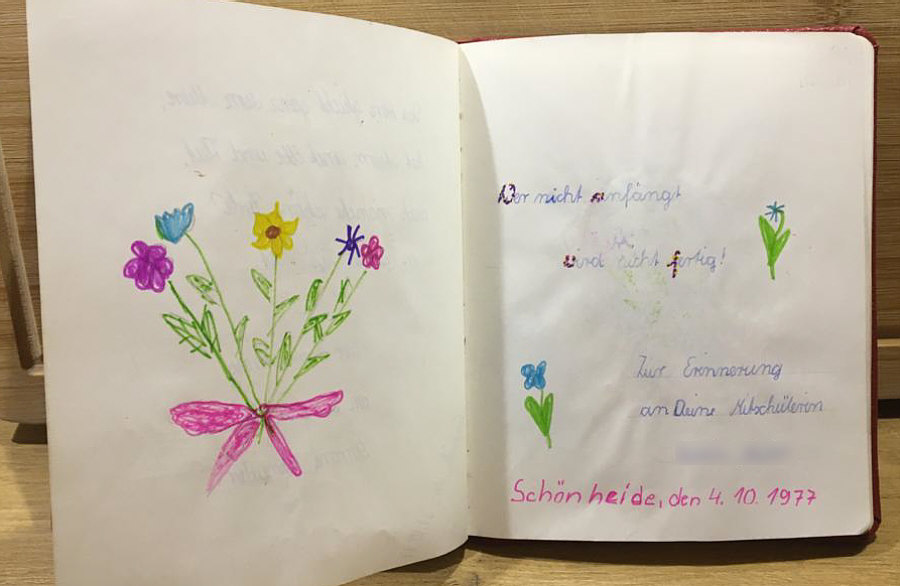 Wer nicht anfängt
wird nicht fertig!
Zur Erinnerung
an Deine Mitschülerin
Schönheide, den 4. 10. 1977